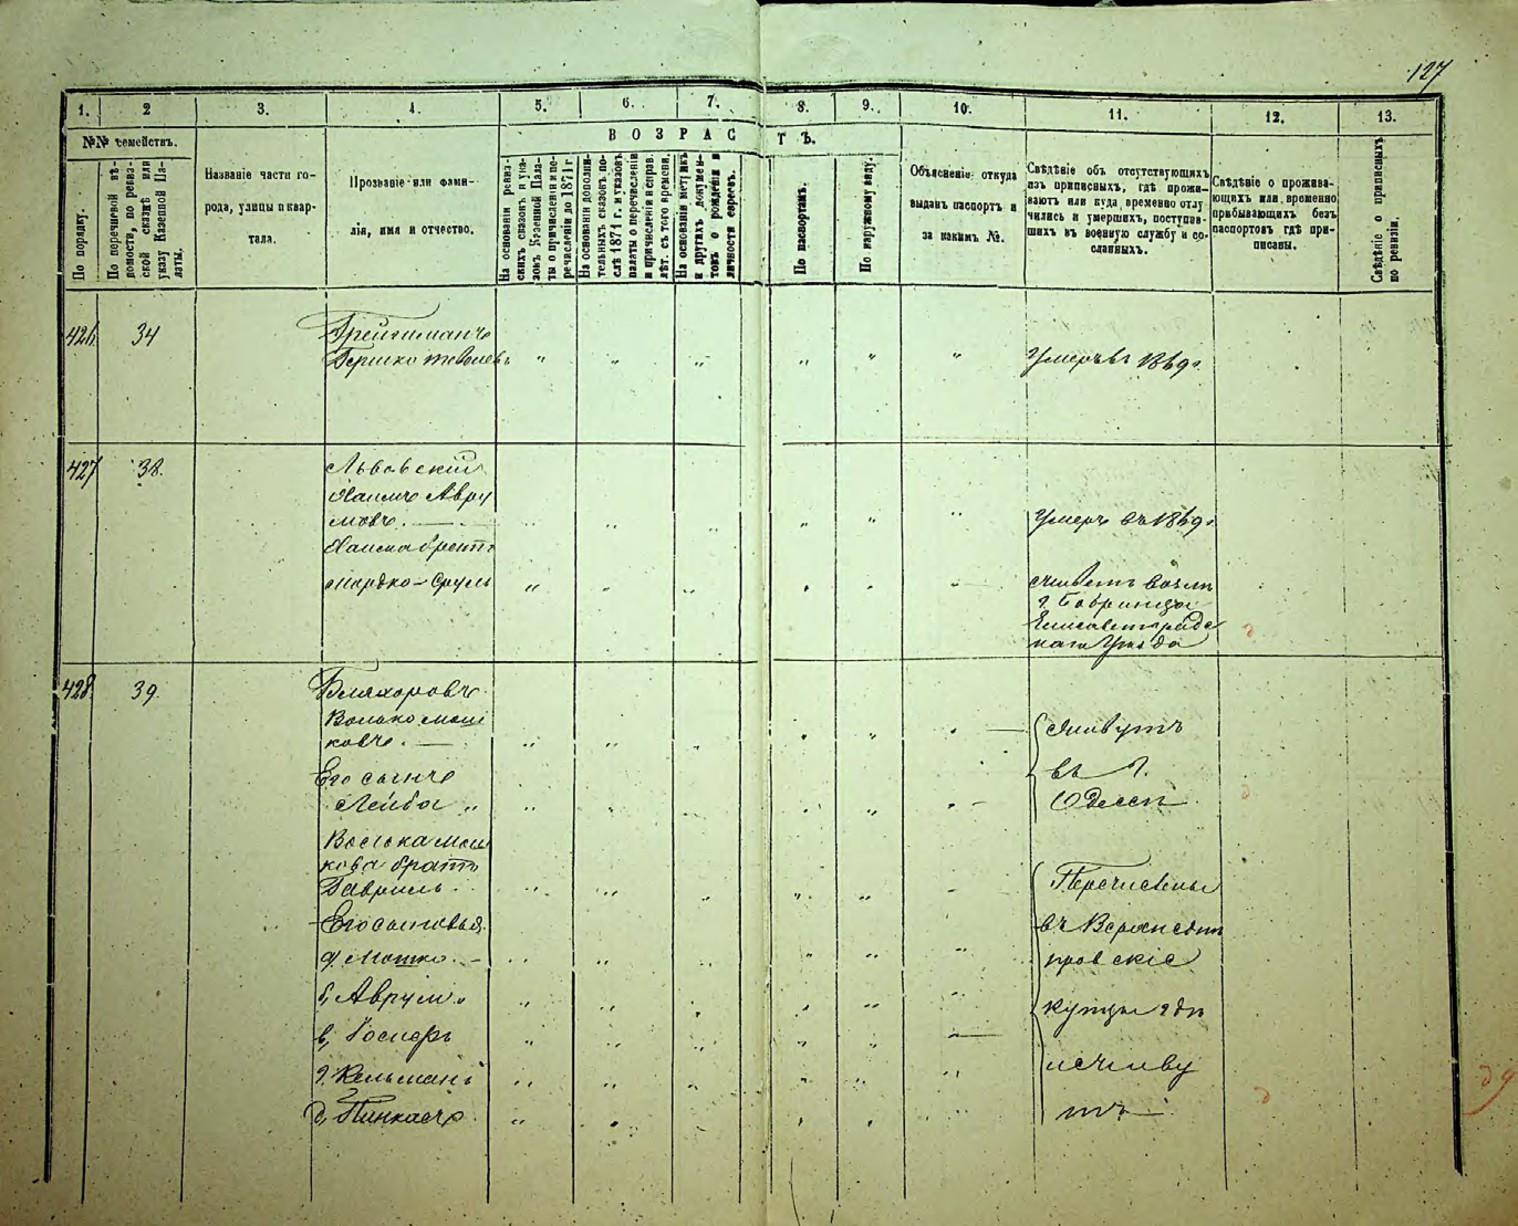 127
1. 2 3. 4. 5. 6. 7. 8. 9. 10. 11. 12. 13.
№№ семействъ.
В О З Р А С Т Ъ.
По порядку.
По перечневой вѣ-
домости, по ревиз-
ской сказкѣ или
указу Казенной Па-
латы.
Названіе части го-
рода, улицы и квар-
тала.
Прозваніе или фами-
лія, имя и отчество.
На основаніи ревиз-
скихъ сказокъ и ука-
зовъ Казенной Пала-
ты о причисленіи и пе-
речисленіи до 1871 г.
На основаніи дополни-
тельныхъ сказокъ по-
слѣ 1871 г. и указовъ
палаты о перечисленіи
и причисленіи и справ.
лѣт. съ того времени.
На основаніи метрикъ
и другихъ докумен-
товъ о рожденіи и
личности евреевъ.
По паспортамъ.
По наружному виду.
Объясненіе откуда
выданъ паспортъ и
за какимъ №.
Свѣдѣніе объ отсутствующихъ
изъ приписныхъ, гдѣ прожи-
ваютъ или куда временно отлу
чились и умершихъ, поступив-
шихъ въ военную службу и со-
сланныхъ.
Свѣдѣніе о прожива-
ющихъ или временно
прибывающихъ безъ
паспортовъ гдѣ при-
писаны.
Свѣдѣніе о приписныхъ
по ревизіи.
426 34 Грейтиманъ
Гершко " " " " " " Умеръ въ 1869 г.
427 38. Львовскій
Хаимъ Авру
мовъ. — " " " " " " Умеръ въ 1869 г.
Хаима братъ
Мордко-Сруль " " " " " " живетъ возлѣ
г. Бобринца
Елисаветградс
каго Уѣзда
428. 39. Бляхоровъ
Волько Мош
ковъ. — " " " " " " Живутъ
Его сынъ въ г.
Лейба " " " " " " " Одессѣ
Волька Мош
кова братъ
Гавриль. " " " " " " Перечислены
Его сыновья въ Верхнедне
а, Мошко. — " " " " " " провскіе
б, Аврумъ " " " " " " купцы гдѣ
в, Іосперъ " " " " " "
г, Кельманъ " " " " " " и живу
д, Пинкасъ " " " " " " тъ —